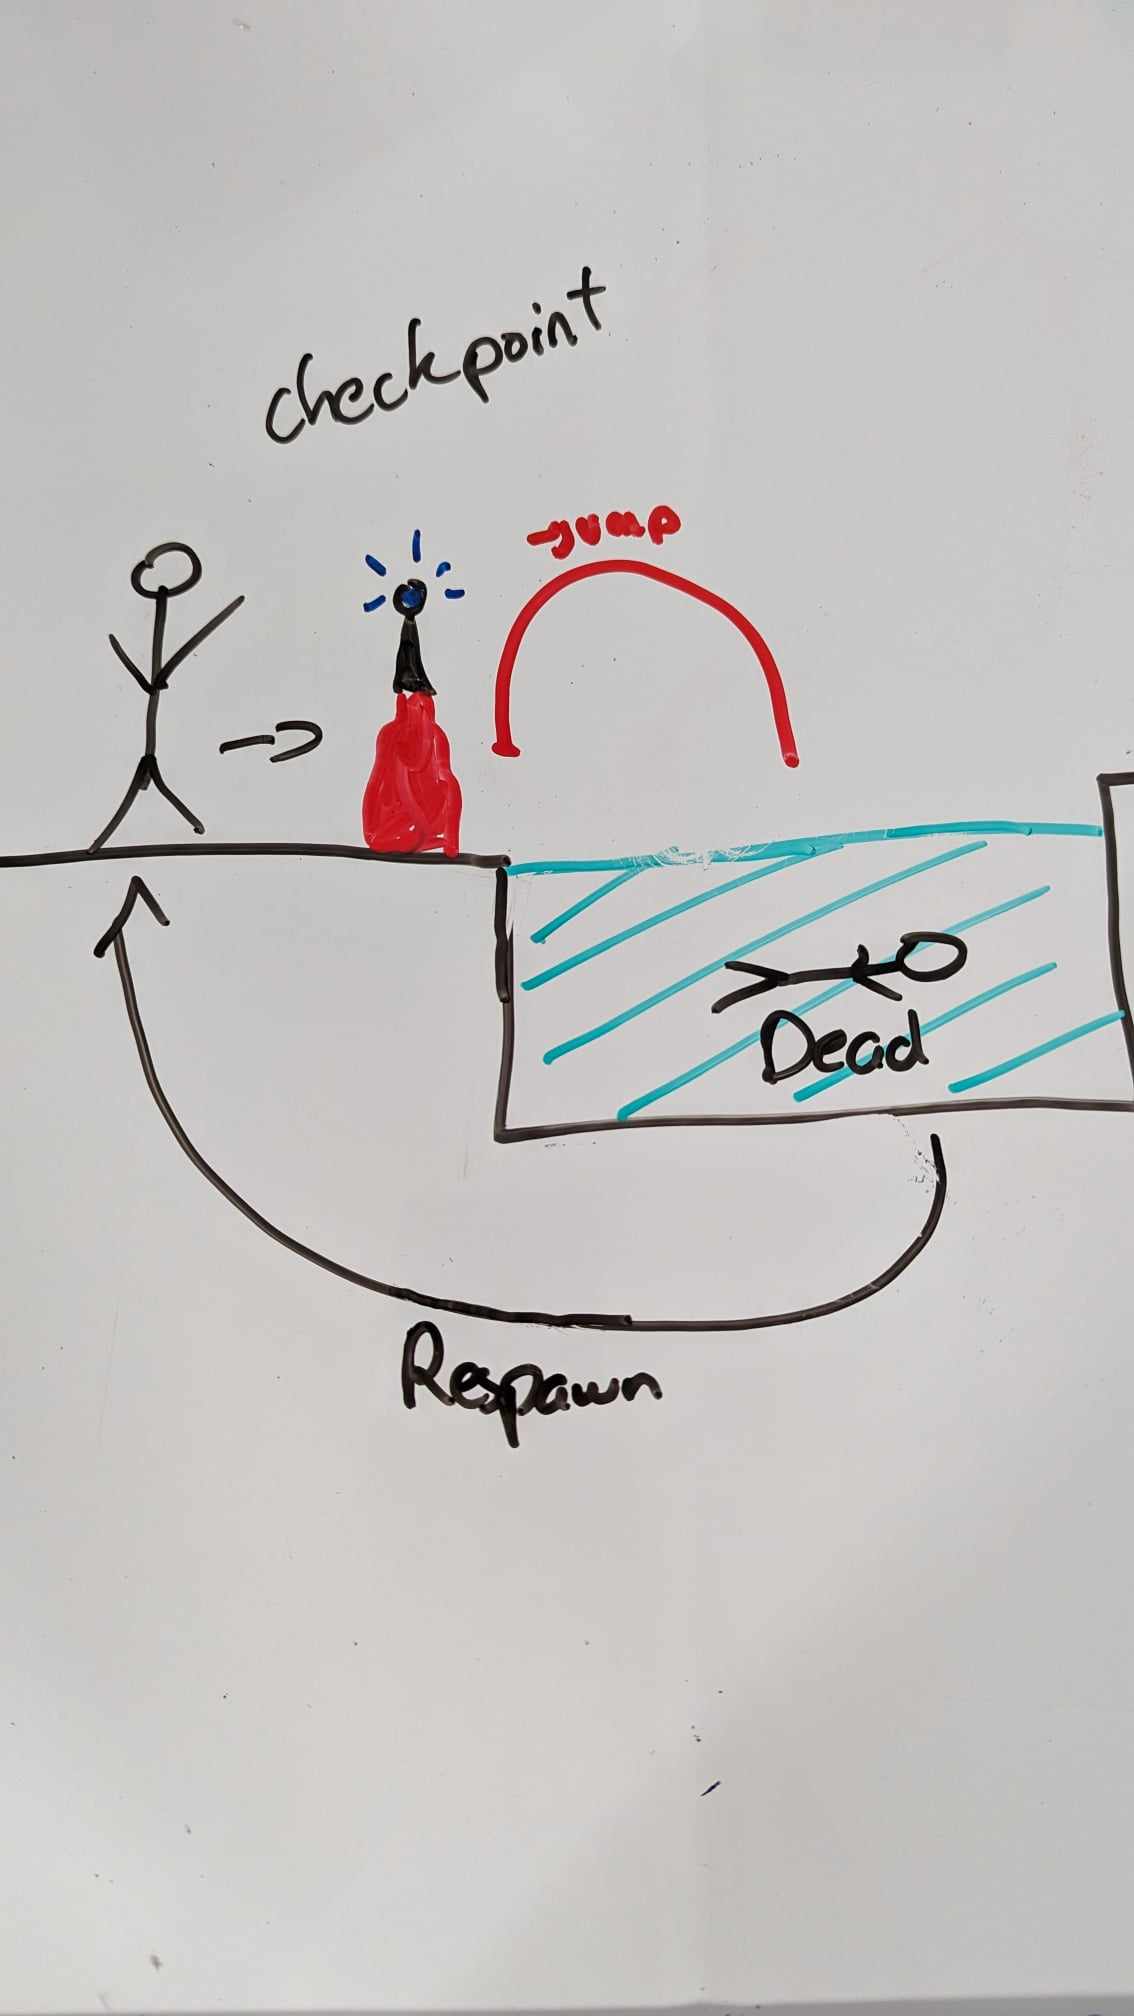 checkpoint
Jump
Dead
Respawn